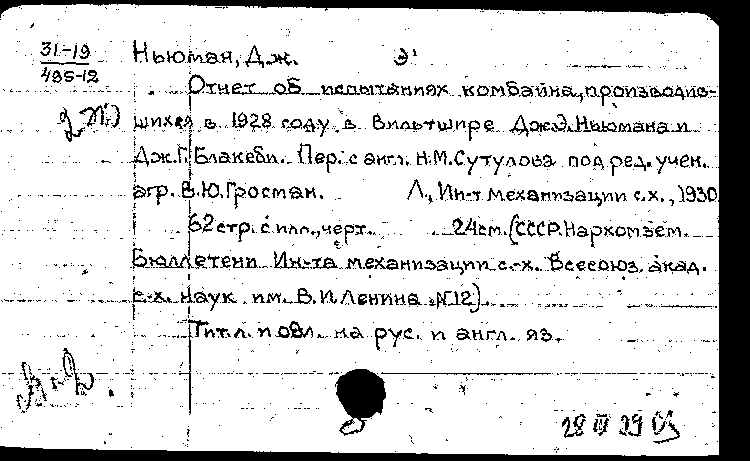 31-19 Ньюман, Дж. Э.
495-12
Отчет об испытаниях комбайна, производив-
шихся в 1928 году в Вильтшире Дж.Э. Ньюмана и
Дж.Г. Блакеби. Пер. с англ. Н.М. Сутулова под ред. учен.
агр. В.Ю. Гросман. Л., Ин-т механизации с.х., 1930
62 стр. с илл., черт. 24 см. (СССР. Наркомзем.
Бюллетени Ин-та механизации с.-х. Всесоюз. акад.
с.-х. наук им. В.И. Ленина №12).
Тит. л. и обл. на рус. и англ. яз.
28 IV 39